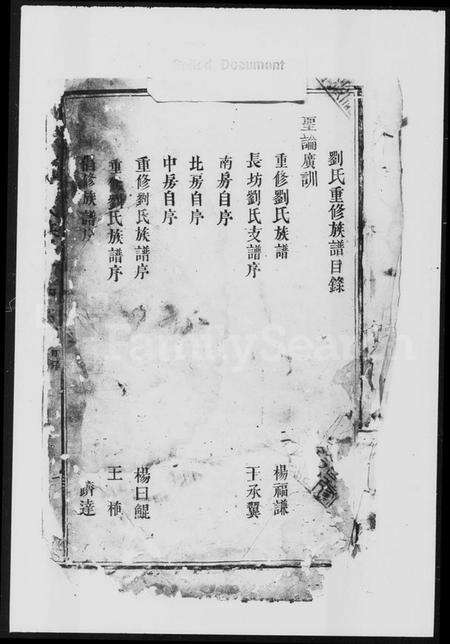 Faded Document
劉氏重修族譜目錄
聖諭廣訓
重修劉氏族譜 楊福謙
長坊劉氏支譜序 王承翼
南房自序
北房自序
中房自序
重修劉氏族譜序 楊曰鯤
重修劉氏族譜序 王植
修族譜序 躋達
FamilySearch